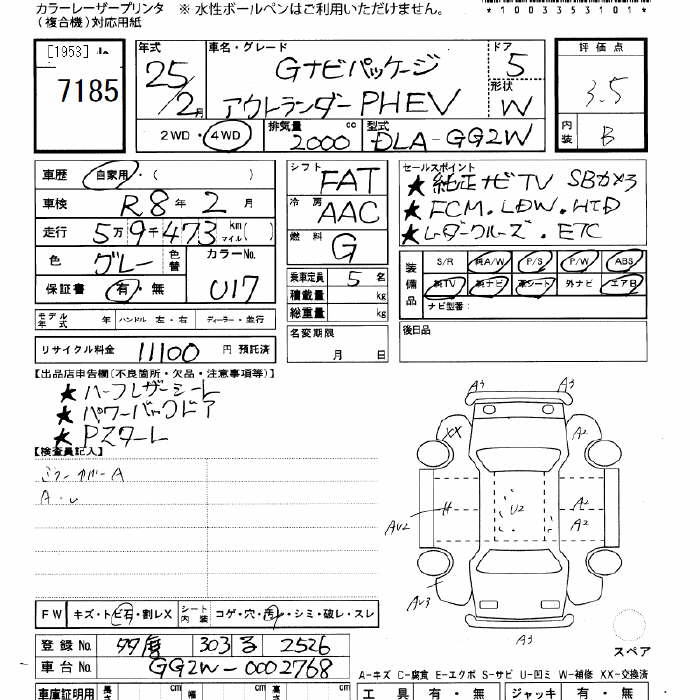 カラーレーザープリンタ ※ 水性ボールペンはご利用いただけません。
(複合機)対応用紙
*1003353101*
[1953]
7185
年式 25/2月
車名・グレード Gナビパッケージ
アウトランダーPHEV
ドア 5
形状 W
2WD・4WD 排気量 2000 cc 型式 DLA-GG2W
評価点 3.5
内装 B
車歴 自家用・( )
車検 R8年 2月
走行 5万9千473 km マイル( )
色 グレー 色替 カラーNo. 017
保証書 有・無
モデル年式 年 ハンドル 左・右 ディーラー・並行
リサイクル料金 11100 円 預託済
シフト FAT
冷房 AAC
燃料 G
乗車定員 5 名
積載量 kg
総重量 kg
名変期限 月 日
セールスポイント
★純正ナビTV SBカメラ
★FCM.LDW.HID
★レーダークルーズ.ETC
装備品 S/R 純A/W P/S P/W ABS
純TV 純ナビ 革シート 外ナビ エアB
ナビ型番:
後日品
[出品店申告欄(不良箇所・欠品・注意事項等)]
★ハーフレザーシート
★パワーバックドア
★Pスタート
【検査員記入】
ミラーカバーA
A・U
A3 A3
XX A2
H U2 A2
AU2 A2
AU3
A3
スペア
FW キズ・トビ石・割レX シート内装 コゲ・穴・汚レ・シミ・破レ・スレ
登録No. 303 る 2526
車台No. GG2W-0002768
A-キズ C-腐食 E-エクボ S-サビ U-凹ミ W-補修 XX-交換済
車庫証明用 長さ cm 幅 cm 高さ cm
工具 有・無 ジャッキ 有・無